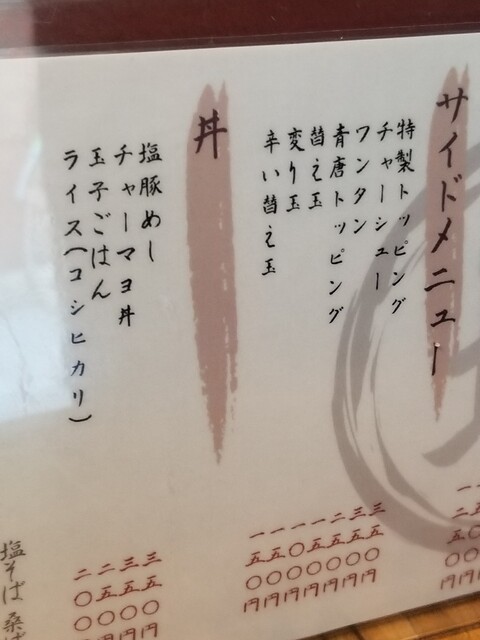 サイドメニュー
特製トッピング
三五〇円
チャーシュー
三五〇円
ワンタン
二五〇円
青唐トッピング
一五〇円
替え玉
一〇〇円
変り玉
一五〇円
辛い替え玉
一五〇円
丼
塩豚めし
三五〇円
チャーマヨ丼
三五〇円
玉子ごはん
二五〇円
ライス(コシヒカリ)
二〇〇円
塩そば